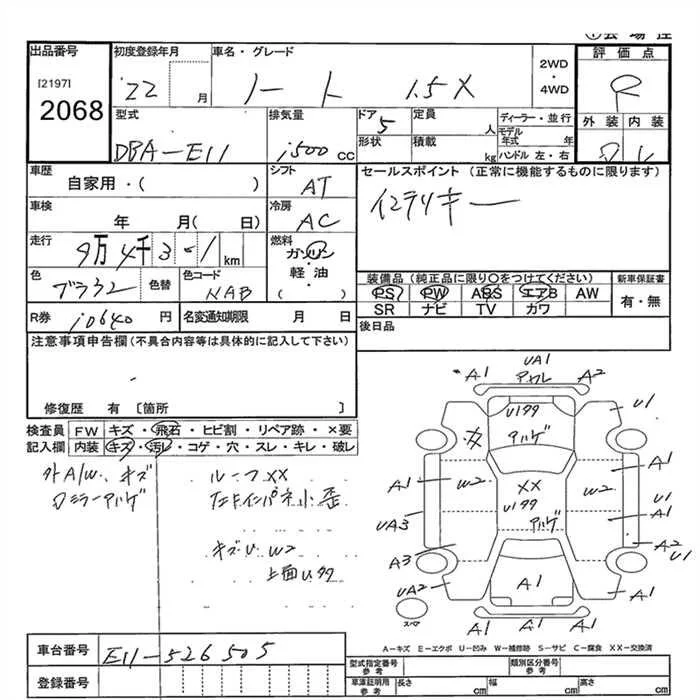 出品番号 初度登録年月 車名・グレード 2WD・4WD 評価点
[2197]
2068
'22 月 ノート 1.5X R
型式 排気量 ドア 定員 ディーラー・並行 外装 内装
DBA-E11 1500 CC 5 人 モデル年式 年
形状 積載 kg ハンドル 左・右
車歴 シフト セールスポイント (正常に機能するものに限ります)
自家用・( ) AT
インテリキー
車検 冷房
年 月( 日) AC
走行 燃料
9万4千3 1 km ガソリン・軽油・( )
色 色替 色コード 装備品 (純正品に限り〇をつけてください) 新車保証書
ブラウン NAB PS PW ABS エアB AW 有・無
SR ナビ TV カワ
R券 10640 円 名変通知期限 月 日 後日品
注意事項申告欄(不具合内容等は具体的に記入して下さい)
修復歴 有 [箇所 ]
検査員 FW キズ・飛石・ヒビ割・リペア跡・×要
記入欄 内装 キズ・汚レ・コゲ・穴・スレ・キレ・破レ
外A/W、キズ ルーフXX
ロミラーアハゲ
キズU W2
上面Uタタ
UA1
A1 アカレ A2
Uタタ U1
アハゲ
A1 W2 XX W2 U1
Uタタ A1
UA3 アハゲ
A3 A2
U1
UA2 A1 A1
スペア
A1 A1 A1
車台番号 E11-526505
A-キズ E-エクボ U-凹み W-補修跡 S-サビ C-腐食 XX-交換済
登録番号
型式指定番号 参考 類別区分番号 参考
車庫証明用 参考 長さ cm 幅 cm 高さ cm